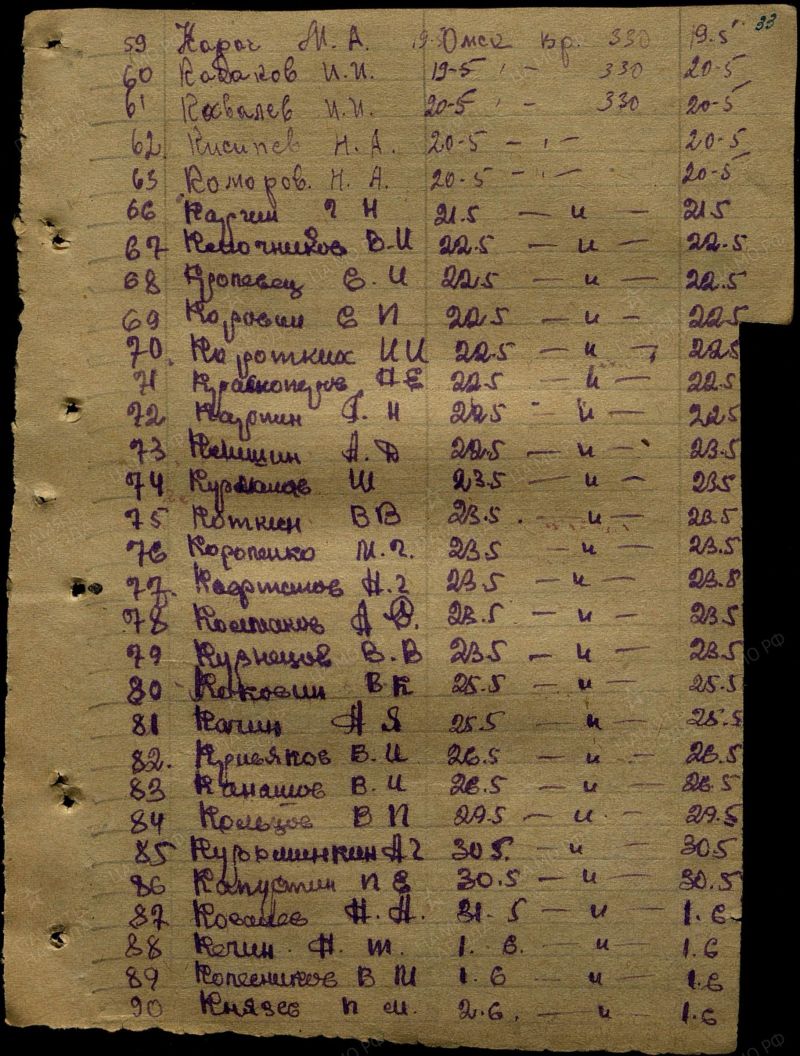 33
59 Карог М. А. 19- Омск вр. 330 19.5
60 Кабаков И.И. 19-5 " - 330 20-5
61 Ковалев И.И. 20-5 " - 330 20-5
62 Н. А. 20-5 - " - 20-5
63 Комаров. Н. А. 20-5 - " - 20-5
66 Г Н 21.5 — и — 21.5
67 Ключников В.И 22.5 — и — 22.5
68 Кропевец Е. И 22.5 — и — 22.5
69 Коровин Е П 22.5 — и — 22.5
70. Коротких И И 22.5 — и — 22.5
71 Краскоперов Н Е 22.5 — и — 22.5
72 Карпин Г. Н 22.5 — и — 22.5
73 Кенишин А. Д 22.5 — и — 23.5
74 Курманов Ш 23.5 — и — 23.5
75 Коткин В В 23.5 . — и — 23.5
76 Коропенко М. Г. 23.5 — и — 23.5
77. Н. Г 23.5 — и — 23.8
78 Колпаков А В. 23.5 — и — 23.5
79 Кузнецов В. В 23.5 — и — 23.5
80 Каковин В К 25.5 — и — 25.5
81 Качин А Я 25.5 — и — 25.5
82. В. И 26.5 — и — 26.5
83 Канашов В. И 26.5 — и — 26.5
84 Кольцов В П 29.5 — и — 29.5
85 Кузьминкин А Г 30 5. — и — 30.5
86 Капустин П Е 30.5 — и — 30.5
87 Ковалев Н. Н. 31. 5 — и — 1.6
88 Кечин Н. т. 1. 6. — и — 1.6
89 Колесников В М 1. 6 — и — 1.6
90 Князев П М. 2.6. — и — 1.6